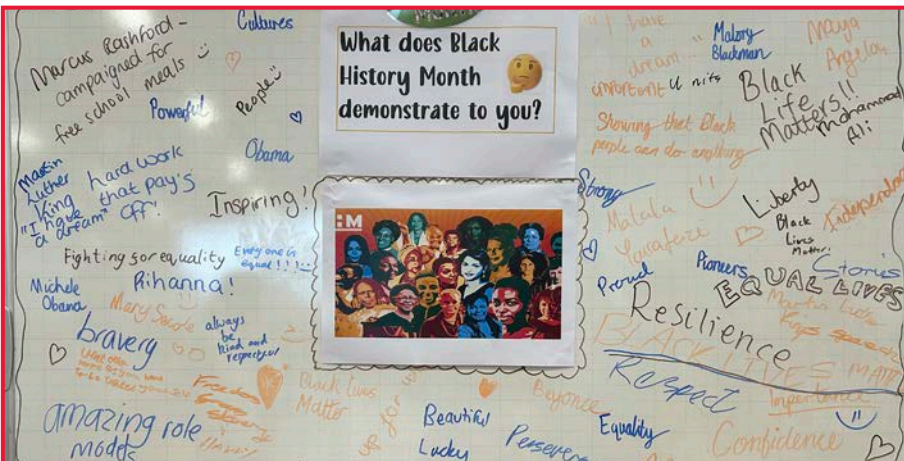 What does Black
History Month
demonstrate to you?
Marcus Rashford -
campaigned for
free school meals
Cultures
Powerful
People
Obama
Martin
Luther
King
"I have
a dream"
hard work
that pay's
off!
Inspiring!
Fighting for equality
Every one is
equal!!!
Michele
Obama
Rihanna!
Mary Secole
bravery
always
be
kind and
respectful
Freedom
amazing role
models
Black lives
Matter
Beautiful
Lucky
:M
"I have
a
dream"
important
Units
Malory
Blackman
Maya
Angelou
Black
Lifes
Matters!!
Mohammad
Ali
Showing that Black
people can do anything
Strong
Malala
Liberty
Black
Lives
Matter!
Independent
Proud
Pioneers
Stories
EQUAL LIVES
Martin Luther
Kings speech
Resilience
BLACK LIVES MATTER
Respect
Importance
Beyonce
Equality
Persevere
Confidence